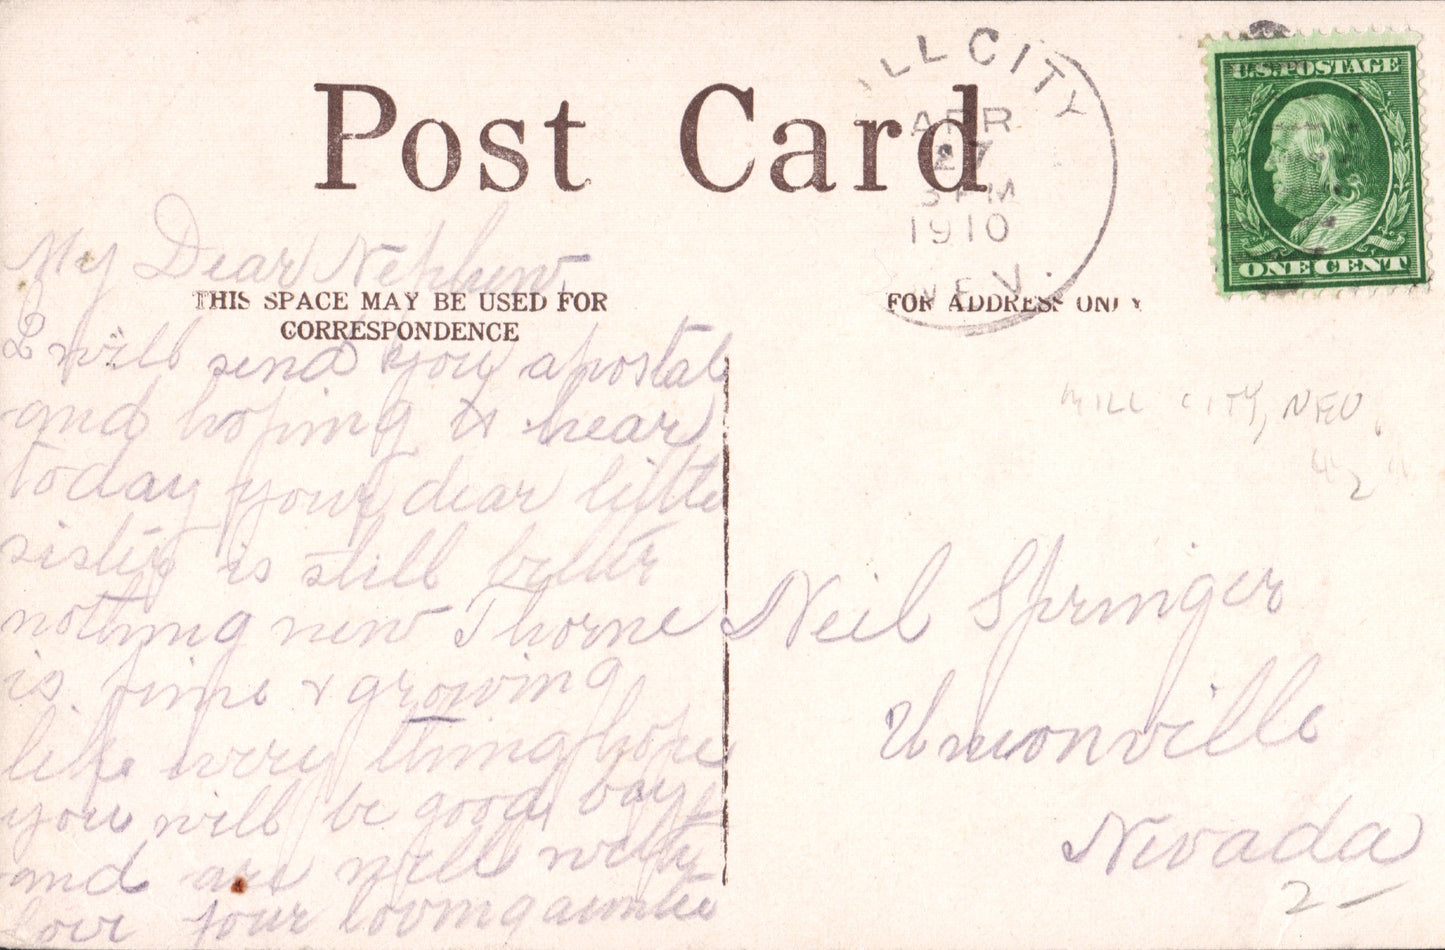 Post Card
MILL CITY
APR
27
3 PM
1910
NEV.
U.S. POSTAGE
ONE CENT
THIS SPACE MAY BE USED FOR
CORRESPONDENCE
FOR ADDRESS ONLY
My Dear Nephew,
I will send you a postal
and hoping to hear
today your dear little
sister is still better
nothing new Thorne
is fine & growing
like every thing hope
you will be good boy
and are well with
love your loving auntie
MILL CITY, NEV.
2
Neil Springer
Unionville
Nevada
2 -